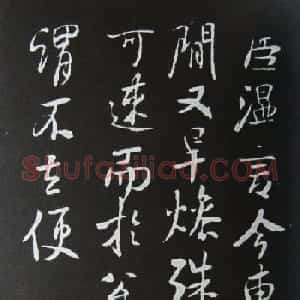 温今東
間又早燥殊
可速而於
謂不去便
Shufaziliao.com